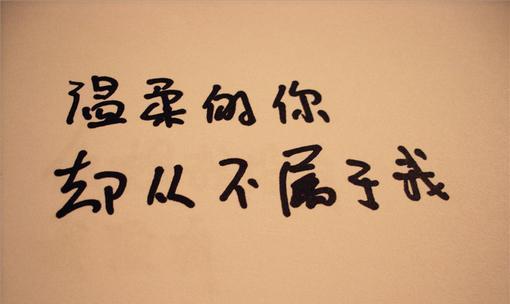 温柔的你
却从不属于我